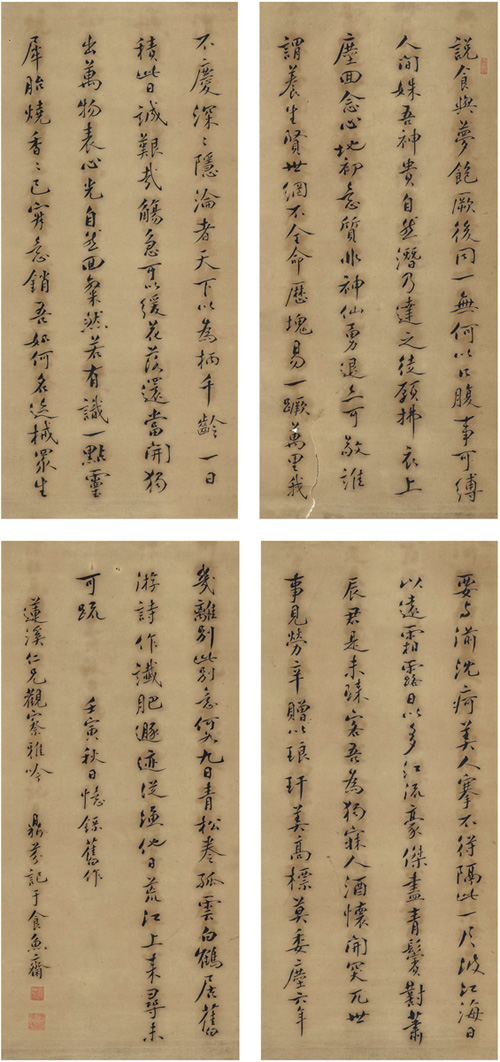 說食與夢飽厥後同一無何以口腹事可縛
人間姝吾神貴自然潛乃達之徒願拂衣上
塵回念心地初意質非神仙勇退亦可敬誰
謂養生賢世網不全命歷塊易一蹶萬里我
不慶深〻隱淪者天下以為柄千齡一日
積此日誠難哉觴急可以緩花落還當開獨
出萬物表心光自然回粲然若有識一點靈
犀胎燒香〻已寂意銷吾如何名迹械眾生
要與湔沈痾美人搴不得隔此一片波江海日
以遠霜露日以多江流豪傑盡青鬢對蕭
辰君是未殊客吾為獨寐人酒懷開笑兀世
事見勞辛贈以琅玕美高標莫委塵六年
幾離別此別意何如九日青松卷孤雲白鶴居舊
游詩作讖肥遯迹從漁他日荒江上來尋未
可疏
壬寅秋日憶錄舊作
蓮溪仁兄觀察雅吟 鼎芬記于食魚齋